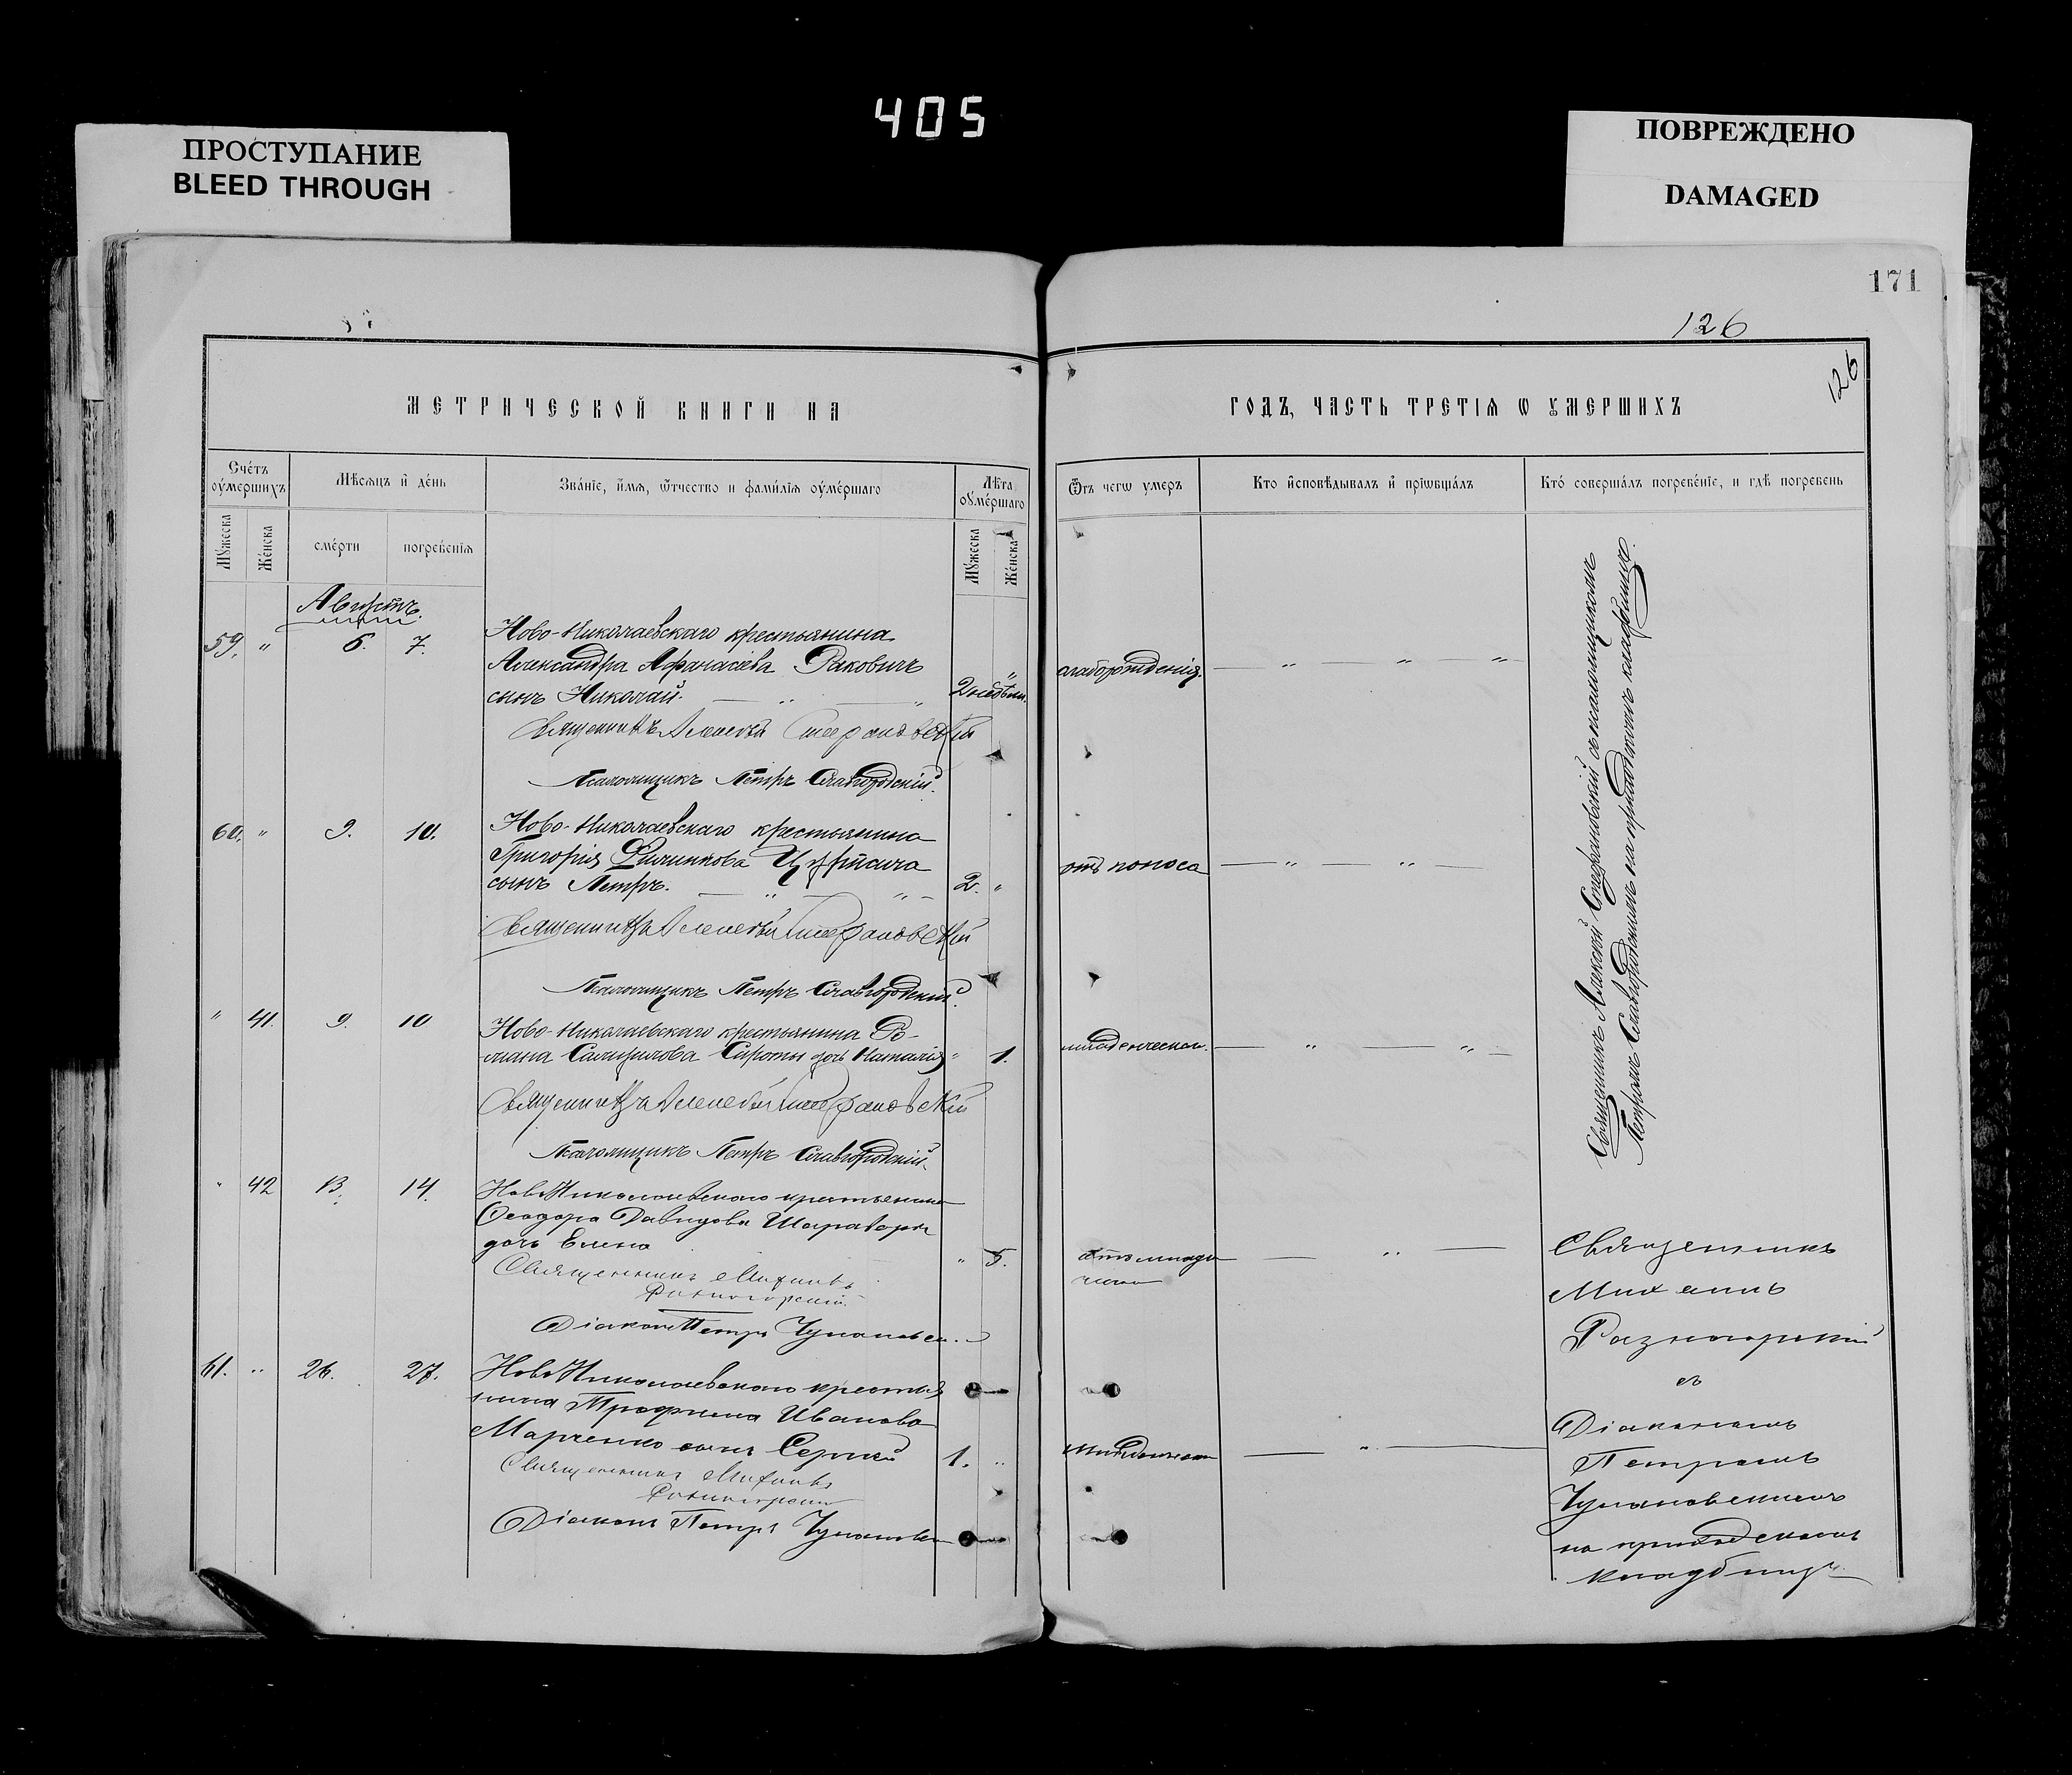 405
ПРОСТУПАНИЕ
BLEED THROUGH
ПОВРЕЖДЕНО
DAMAGED
171
126
126
МЕТРИЧЕСКОЙ КНИГИ НА
ГОДЪ, ЧАСТЬ ТРЕТІЯ Ѡ УМЕРШИХЪ
Счетъ оумершихъ
Мѣсяцъ и день
Званіе, имя, ѿчество и фамилія оумершаго
Лѣта оумершаго
Ѿъ чегѡ умеръ
Кто исповѣдывалъ и пріѡбщалъ
Кто совершалъ погребеніе, и гдѣ погребенъ
Мужеска
Женска
смерти
погребенія
Мужеска
Женска
Августъ
59. " 6. 7.
Ново-Николаевскаго крестьянина
Александра Афанасіева Ракович
сынъ Николай. — " — "
2 недѣли.
слаборожденія. — " " "
Священникъ Алексѣй Стефановскій
Псаломщикъ Петръ Славгородскій.
60. " 9. 10.
Ново-Николаевскаго крестьянина
Григорія Филипкова
сынъ Петръ. — " — " —
2. "
отъ поноса — " — " —
Священникъ Алексѣй Стефановскій
Псаломщикъ Петръ Славгородскій.
" 41. 9. 10
Ново-Николаевскаго крестьянина Ро-
мана Самуилова Сироты дочь Наталія
" 1.
младенческой. — " — " —
Священникъ Алексѣй Стефановскій
Псаломщикъ Петръ Славгородскій.
Священникъ Алексѣй Стефановскій съ псаломщикомъ
Петромъ Славгородскимъ на приходскомъ кладбищѣ.
" 42 13. 14.
Ново Николаевскаго крестьянина
Феодора Давидова
дочь Елена
" 5.
отъ младен
ческой
— " —
Священникъ Михаилъ
Разногорскій
Діаконъ Петръ
61. " 26. 27.
Ново Николаевскаго крестья
нина Трофима Иванова
Марченко сынъ Сергій
1. "
младенческой
— " —
Священникъ Михаилъ
Разногорскій
Діаконъ Петръ
Священникъ
Михаилъ
Разногорскій
съ
Діакономъ
Петромъ
на приходскомъ
кладбищѣ